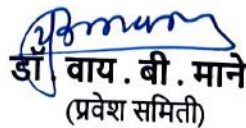 डॉ. वाय . बी . माने
(प्रवेश समिती)